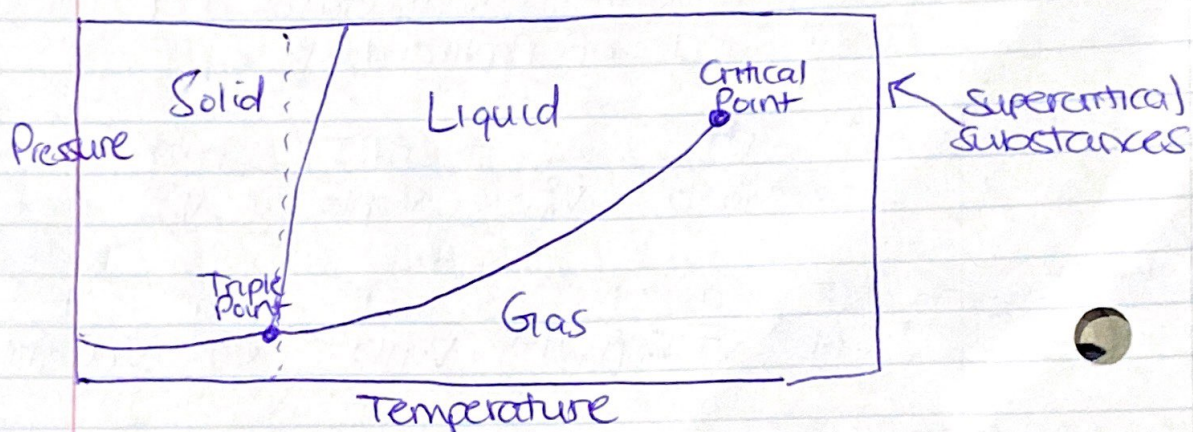 Solid
Liquid
Critical
Point
supercritical
substances
Pressure
Triple
Point
Gas
Temperature